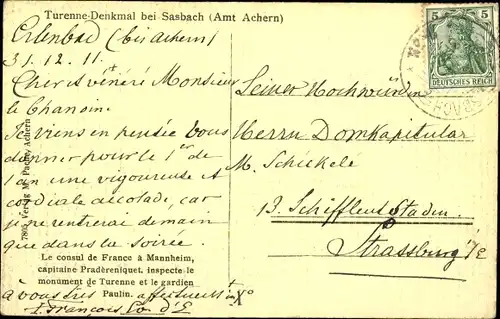 Turenne-Denkmal bei Sasbach (Amt Achern)
Erlenbad (bis Achern)
31.12.11.
Cher et vénéré Monsieur
le Chanoin.
Je viens en pensée vous
donner pour le 1er de
l'an une vigoureuse et
cordiale accolade, car
je ne rentrerai demain
que dans la soirée.
Le consul de France à Mannheim,
capitaine Pradèreniquet, inspecte le
monument de Turenne et le gardien
Paulin.
à vous très affectueust in Xo
François
Verlag M. Pach, Achern
5 5
DEUTSCHES REICH
Seiner Hochwürden
Herrn Domkapitular
M. Schickele
13. Schiffleutstaden
Strassburg i/E